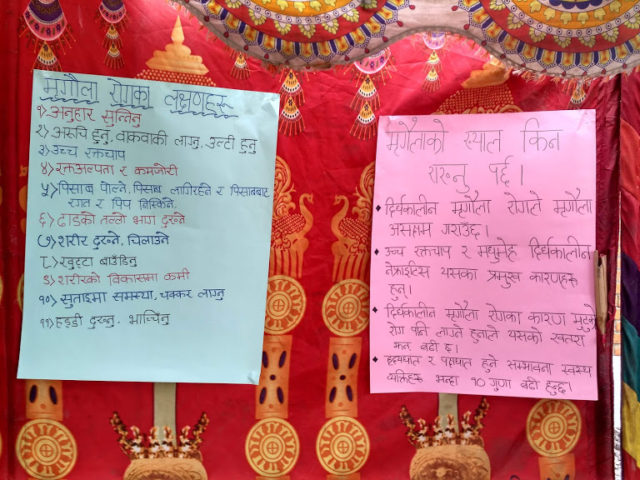 मृगौला रोगका लक्षणहरू
१) अनुहार सुन्निनु
२) अरूचि हुनु, वाकवाकी लाग्नु, उल्टी हुनु
३) उच्च रक्तचाप
४) रक्तअल्पता र कमजोरी
५) पिसाब पोल्ने, पिसाब लागिरहने र पिसाबबाट
रगत र पिप निस्किने
६) ढाडको तल्लो भाग दुख्ने
७) शरीर दुख्ने, चिलाउने
८) खुट्टा बाउँडिनु
९) शरीरको विकासमा कमी
१०) सुताइमा समस्या, चक्कर लाग्नु
११) हड्डी दुख्नु, भाच्चिनु
मृगौलाको ख्याल किन
गर्नु पर्छ।
दिर्घकालीन मृगौला रोगले मृगौला
असक्षम गराउँछ।
उच्च रक्तचाप र मधुमेह दिर्घकालीन
नेफ्राइटिस यसका प्रमुख कारणहरू
हुन्।
दिर्घकालीन मृगौला रोगका कारण मुटुको
रोग पनि लाग्ने हुनाले यसको खतरा
झन बढी छ।
हृदयघात र पक्षघात हुने सम्भावना स्वस्थ
व्यक्तिहरू भन्दा १० गुणा बढी हुन्छ।